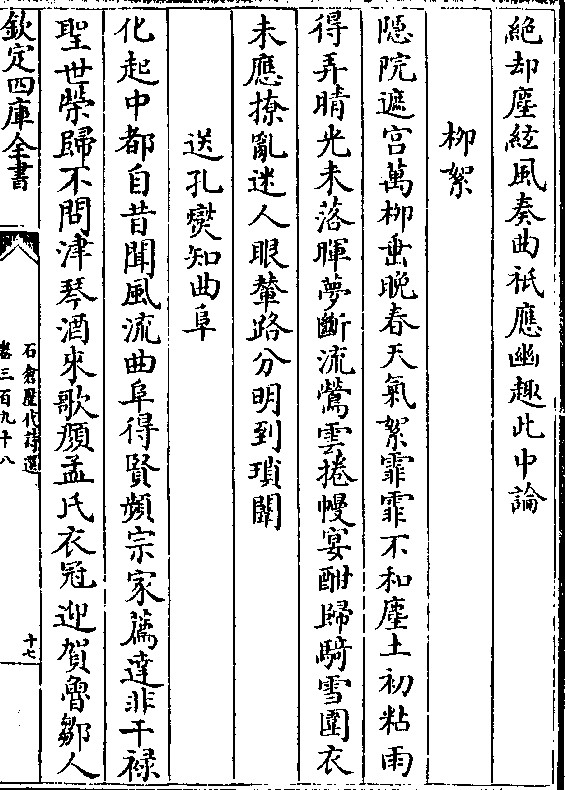 絶却塵絃風奏曲祇應幽趣此中論
栁絮
隠院遮宫萬栁垂晚春天氣絮霏霏不和塵土初粘雨
得弄晴光未落暉夢斷流鶯雲捲幔宴酣歸騎雪圍衣
未應撩亂迷人眼輦路分明到瑣闈
送孔爕知曲阜
化起中都自昔聞風流曲阜得賢頻宗家薦達非干禄
聖世榮歸不問津琴酒來歌顔孟氏衣冠迎賀魯鄒人
欽定四庫全書
石倉歷代詩選
卷三百九十八
十七